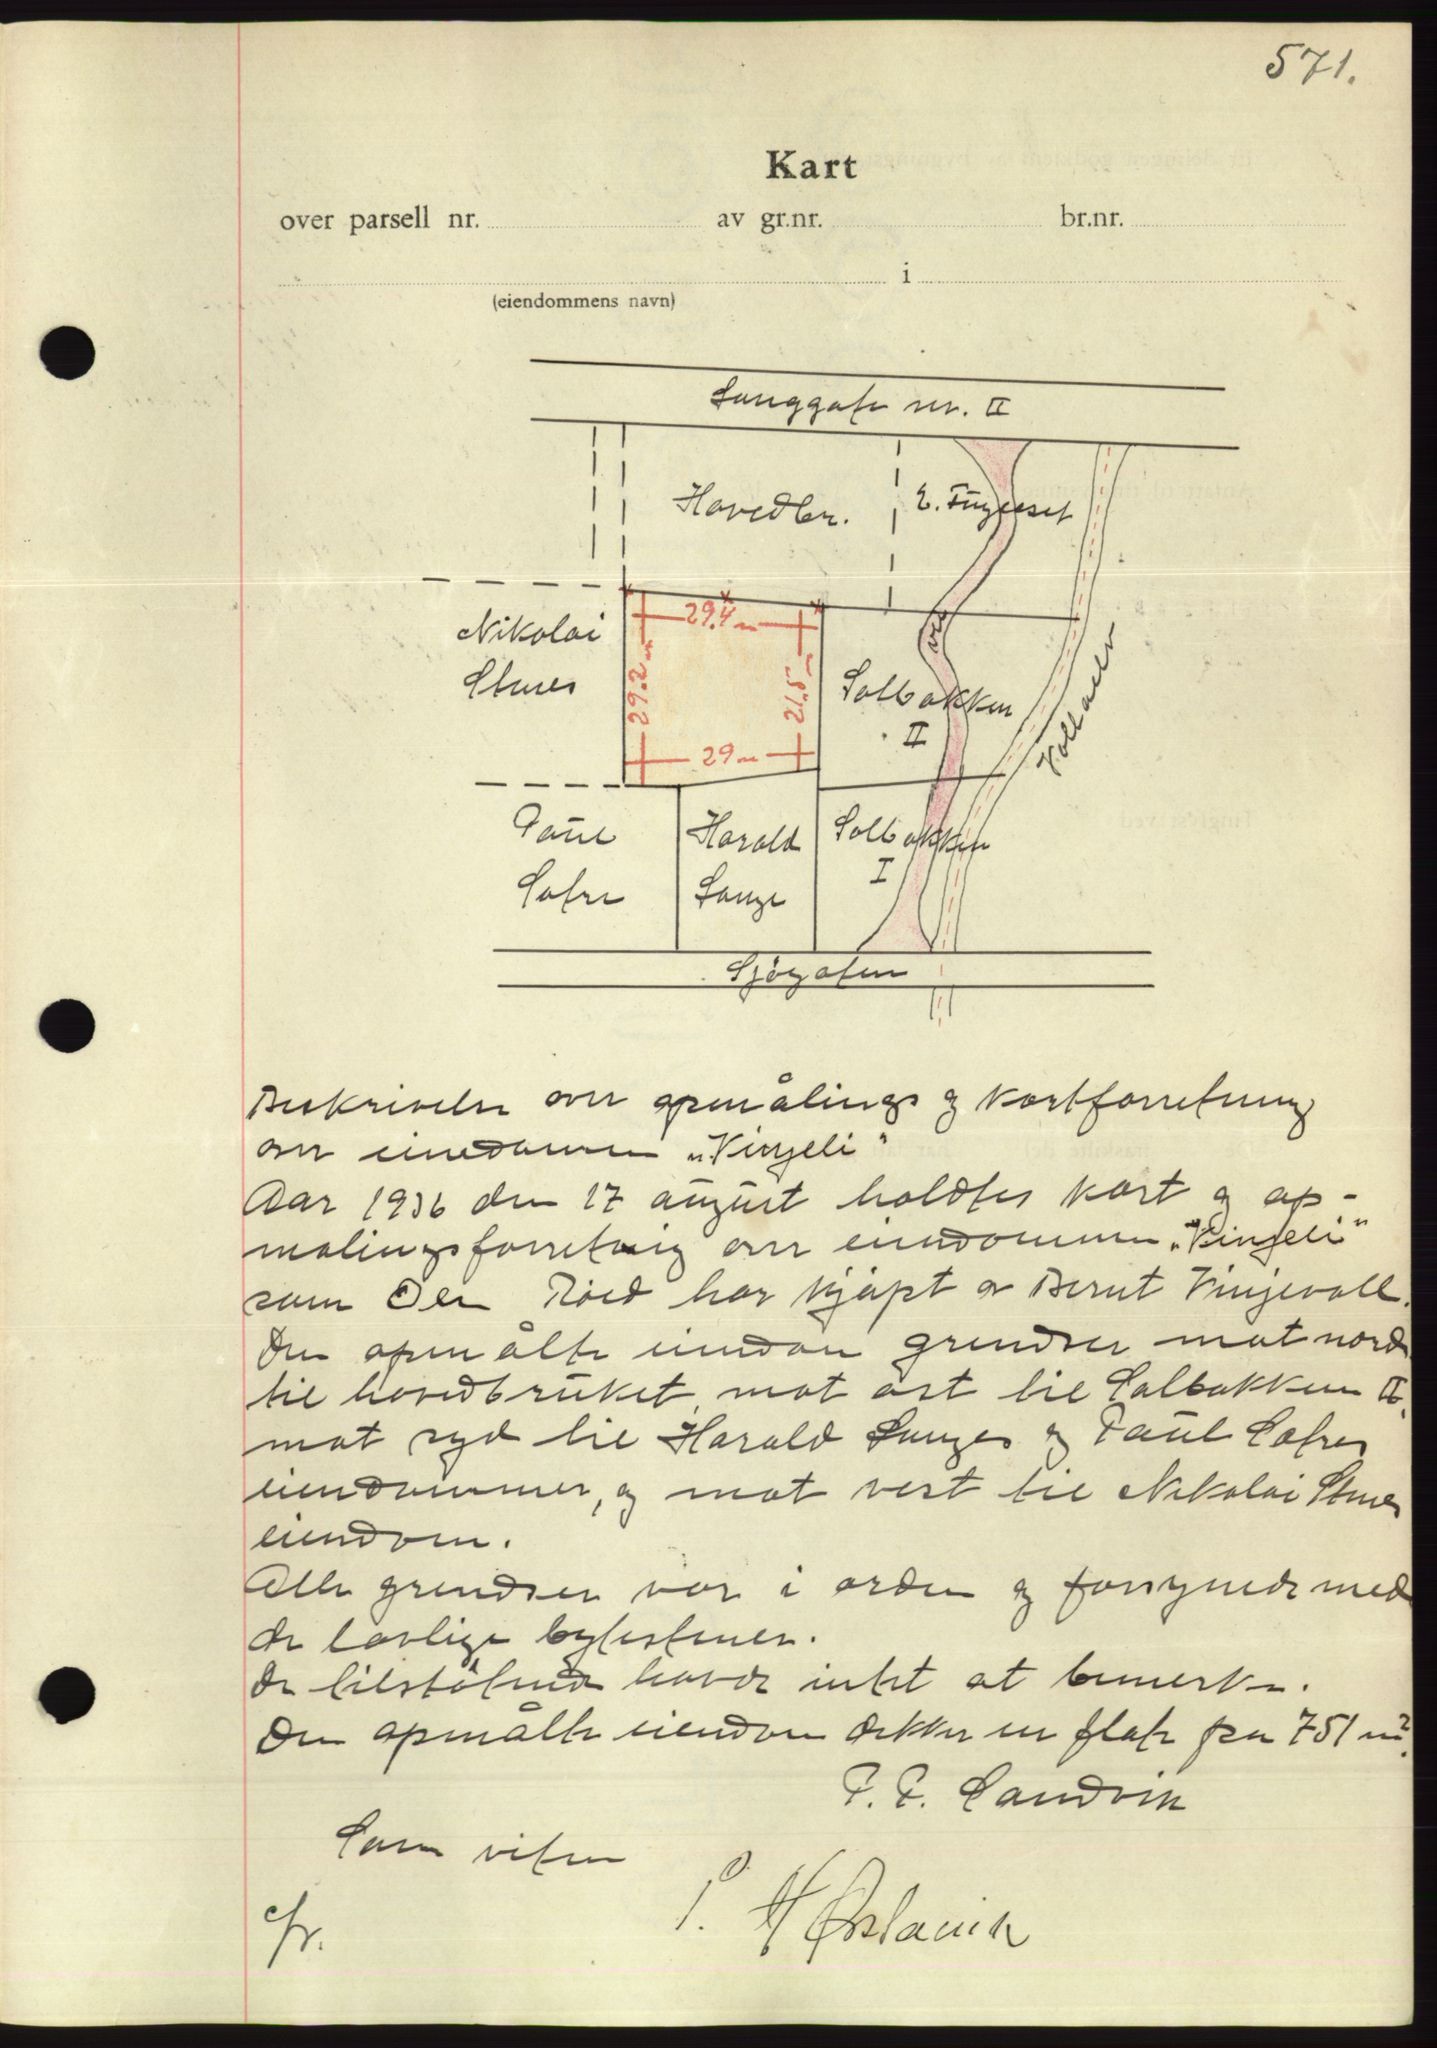 571.
Kart
over parsell nr. av gr.nr. br.nr.
i
(eiendommens navn)
Langgate nr. II
Hovedbr.
29.4 m
Nikolai
Stenes
29.2 m
21.5 m
Solbakken
II
vei
29 m
Paul
Sætre
Harald
Lange
Solbakken
I
Sjøgaten
Beskrivelse over opmålings og kartforretning
over eiendommen „Vinjeli"
Aar 1936 den 17 august holdtes kart og op-
målingsforretning over eiendommen „Vinjeli"
som Røed har kjøpt av Bernt Vinjevoll.
Den opmålte eiendom grendser mot nord
til hovedbruket, mot øst til Solbakken II,
mot syd til Harald Langes og Paul Sætres
eiendommer, og mot vest til Nikolai Stenes
eiendom.
Alle grendser var i orden og forsynede med
de lovlige bytestener.
De tilstøtende havde intet at bemerke.
Den opmålte eiendom dekker en flate paa 751 m².
P. P. Sandvik
Som viten